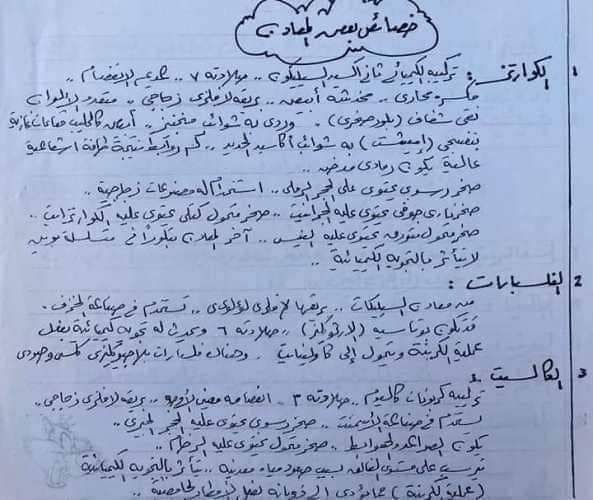 خصائص بعض المعادن
1 الكوارتز : تركيبه الكيميائي ثاني أكسيد السيليكون .. صلادته ٧ .. عديم الانفصام ..
مكسره محاري .. مخدشه أبيض .. بريقه لا فلزي زجاجي .. متعدد الألوان
نقي شفاف ( بلور صخري ) . وردي به شوائب منجنيز .. أبيض كالحليب فقاعات غازية
بنفسجي ( إميثست ) به شوائب أكاسيد الحديد .. كسر روابط نتيجة طاقة اشعاعية
عالية يكون رمادي مدخن ..
صخر رسوبي يحتوي على الحجر الرملي .. استخدامه مصنوعات زجاجية ..
صخر ناري جوفي يحتوي عليه الجرانيت .. صخر متحول كتلي يحتوي عليه الكوارتزايت ..
صخر متحول متورق يحتوي عليه النيس .. آخر المعادن تبلوراً في متسلسلة بوين
لا يتأثر بالتجوية الكيميائية ..
2 الفلسبارات :
من معادن السيليكات .. بريقها لا فلزي لؤلؤي .. تستخدم في صناعة الخزف .
قد تكون بوتاسية ( الأرثوكليز ) .. صلادته ٦ ويحدث له تجوية كيميائية بفعل
عملية الكربنة ويتحول إلى كاولينيت . وهناك فلسبارات بلاجيوكليزي كلسي وصودي
3 الكالسيت :
تركيبه كربونات كالسيوم .. صلادته ٣ . انفصامه معيني الأوجه .. بريقه لا فلزي زجاجي ..
يستخدم في صناعة الأسمنت .. صخر رسوبي يحتوي عليه الحجر الجيري ..
يكون الصواعد والهوابط . صخر متحول يحتوي عليه الرخام ..
يترسب على مستوى الفالق بسبب صعود مياه معدنية .. يتأثر بالتجوية الكيميائية
( عملية الكربنة ) مما يؤدي إلى ذوبانه بفعل الأمطار الحامضية ..